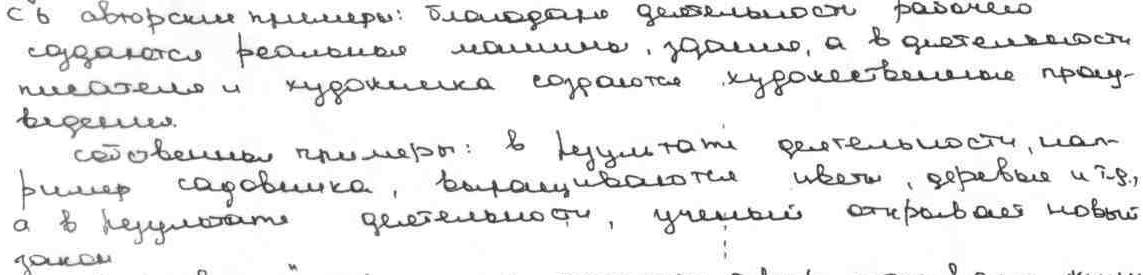 с6 авторские примеры: благодаря деятельности рабочего
создаются реальные машины, здания, а в деятельности
писателя и художника создаются художественные произ-
ведения.
собственные примеры: в результате деятельности, нап-
ример садовника, выращиваются цветы, деревья и т.д.,
а в результате деятельности, ученый открывает новый
закон